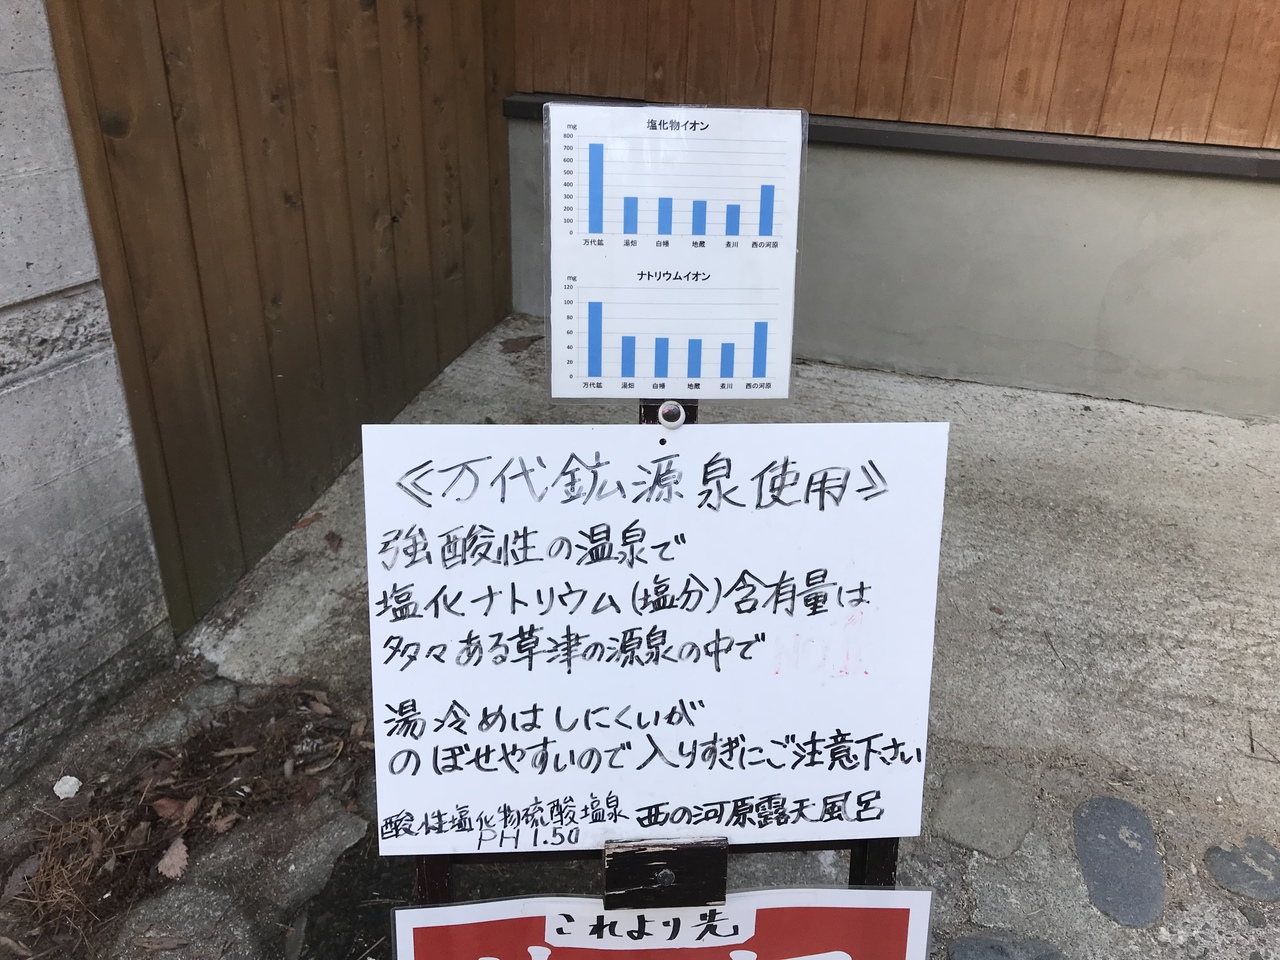 塩化物イオン
mg
800
700
600
500
400
300
200
100
0
万代鉱 湯畑 白幡 地蔵 煮川 西の河原
ナトリウムイオン
mg
120
100
80
60
40
20
0
万代鉱 湯畑 白幡 地蔵 煮川 西の河原
≪万代鉱源泉使用≫
強酸性の温泉で
塩化ナトリウム(塩分)含有量は
多々ある草津の源泉の中で NO.1!!
湯冷めはしにくいが
のぼせやすいので入りすぎにご注意下さい
酸性塩化物硫酸塩泉 西の河原露天風呂
PH 1.50
これより先